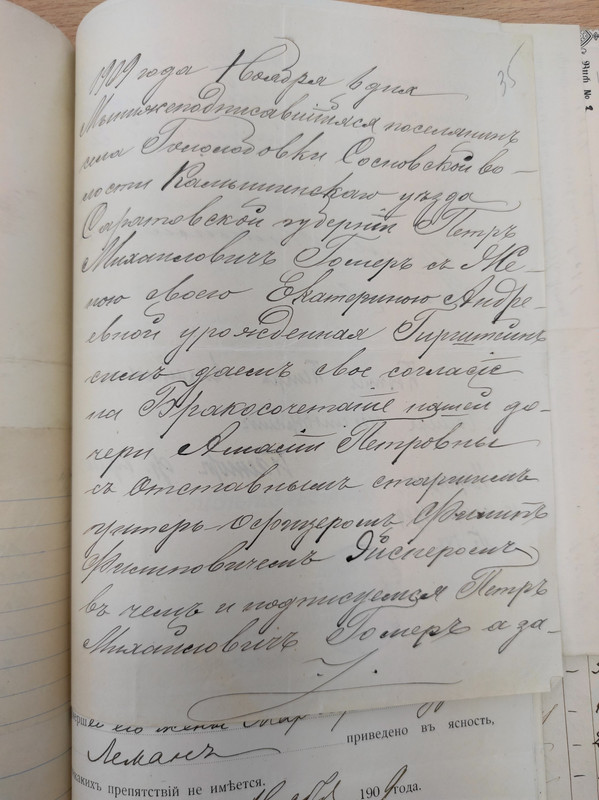 35
1909 года Ноября дня
Мынижеподписавшіяся поселянинъ
села Гололобовки Сосновской во-
лости Камышинскаго уѣзда
Саратовской губерніи Петръ
Михайловичъ Гомеръ съ Же-
ною своею Екатериною Андре-
евной урожденная Гирштейнъ
симъ даемъ свое согласіе
на Бракосочетаніе нашей до-
чери Амаліи Петровны
съ отставнымъ старшимъ
унтеръ-офицеромъ Филипъ
Филиповичемъ Эйснеромъ
въ чемъ и подписуемся Петръ
Михайловичъ Гомеръ а за-
Акт № 2
его жены
Леманъ приведено въ ясность,
какихъ препятствій не имѣется.
1909 года.